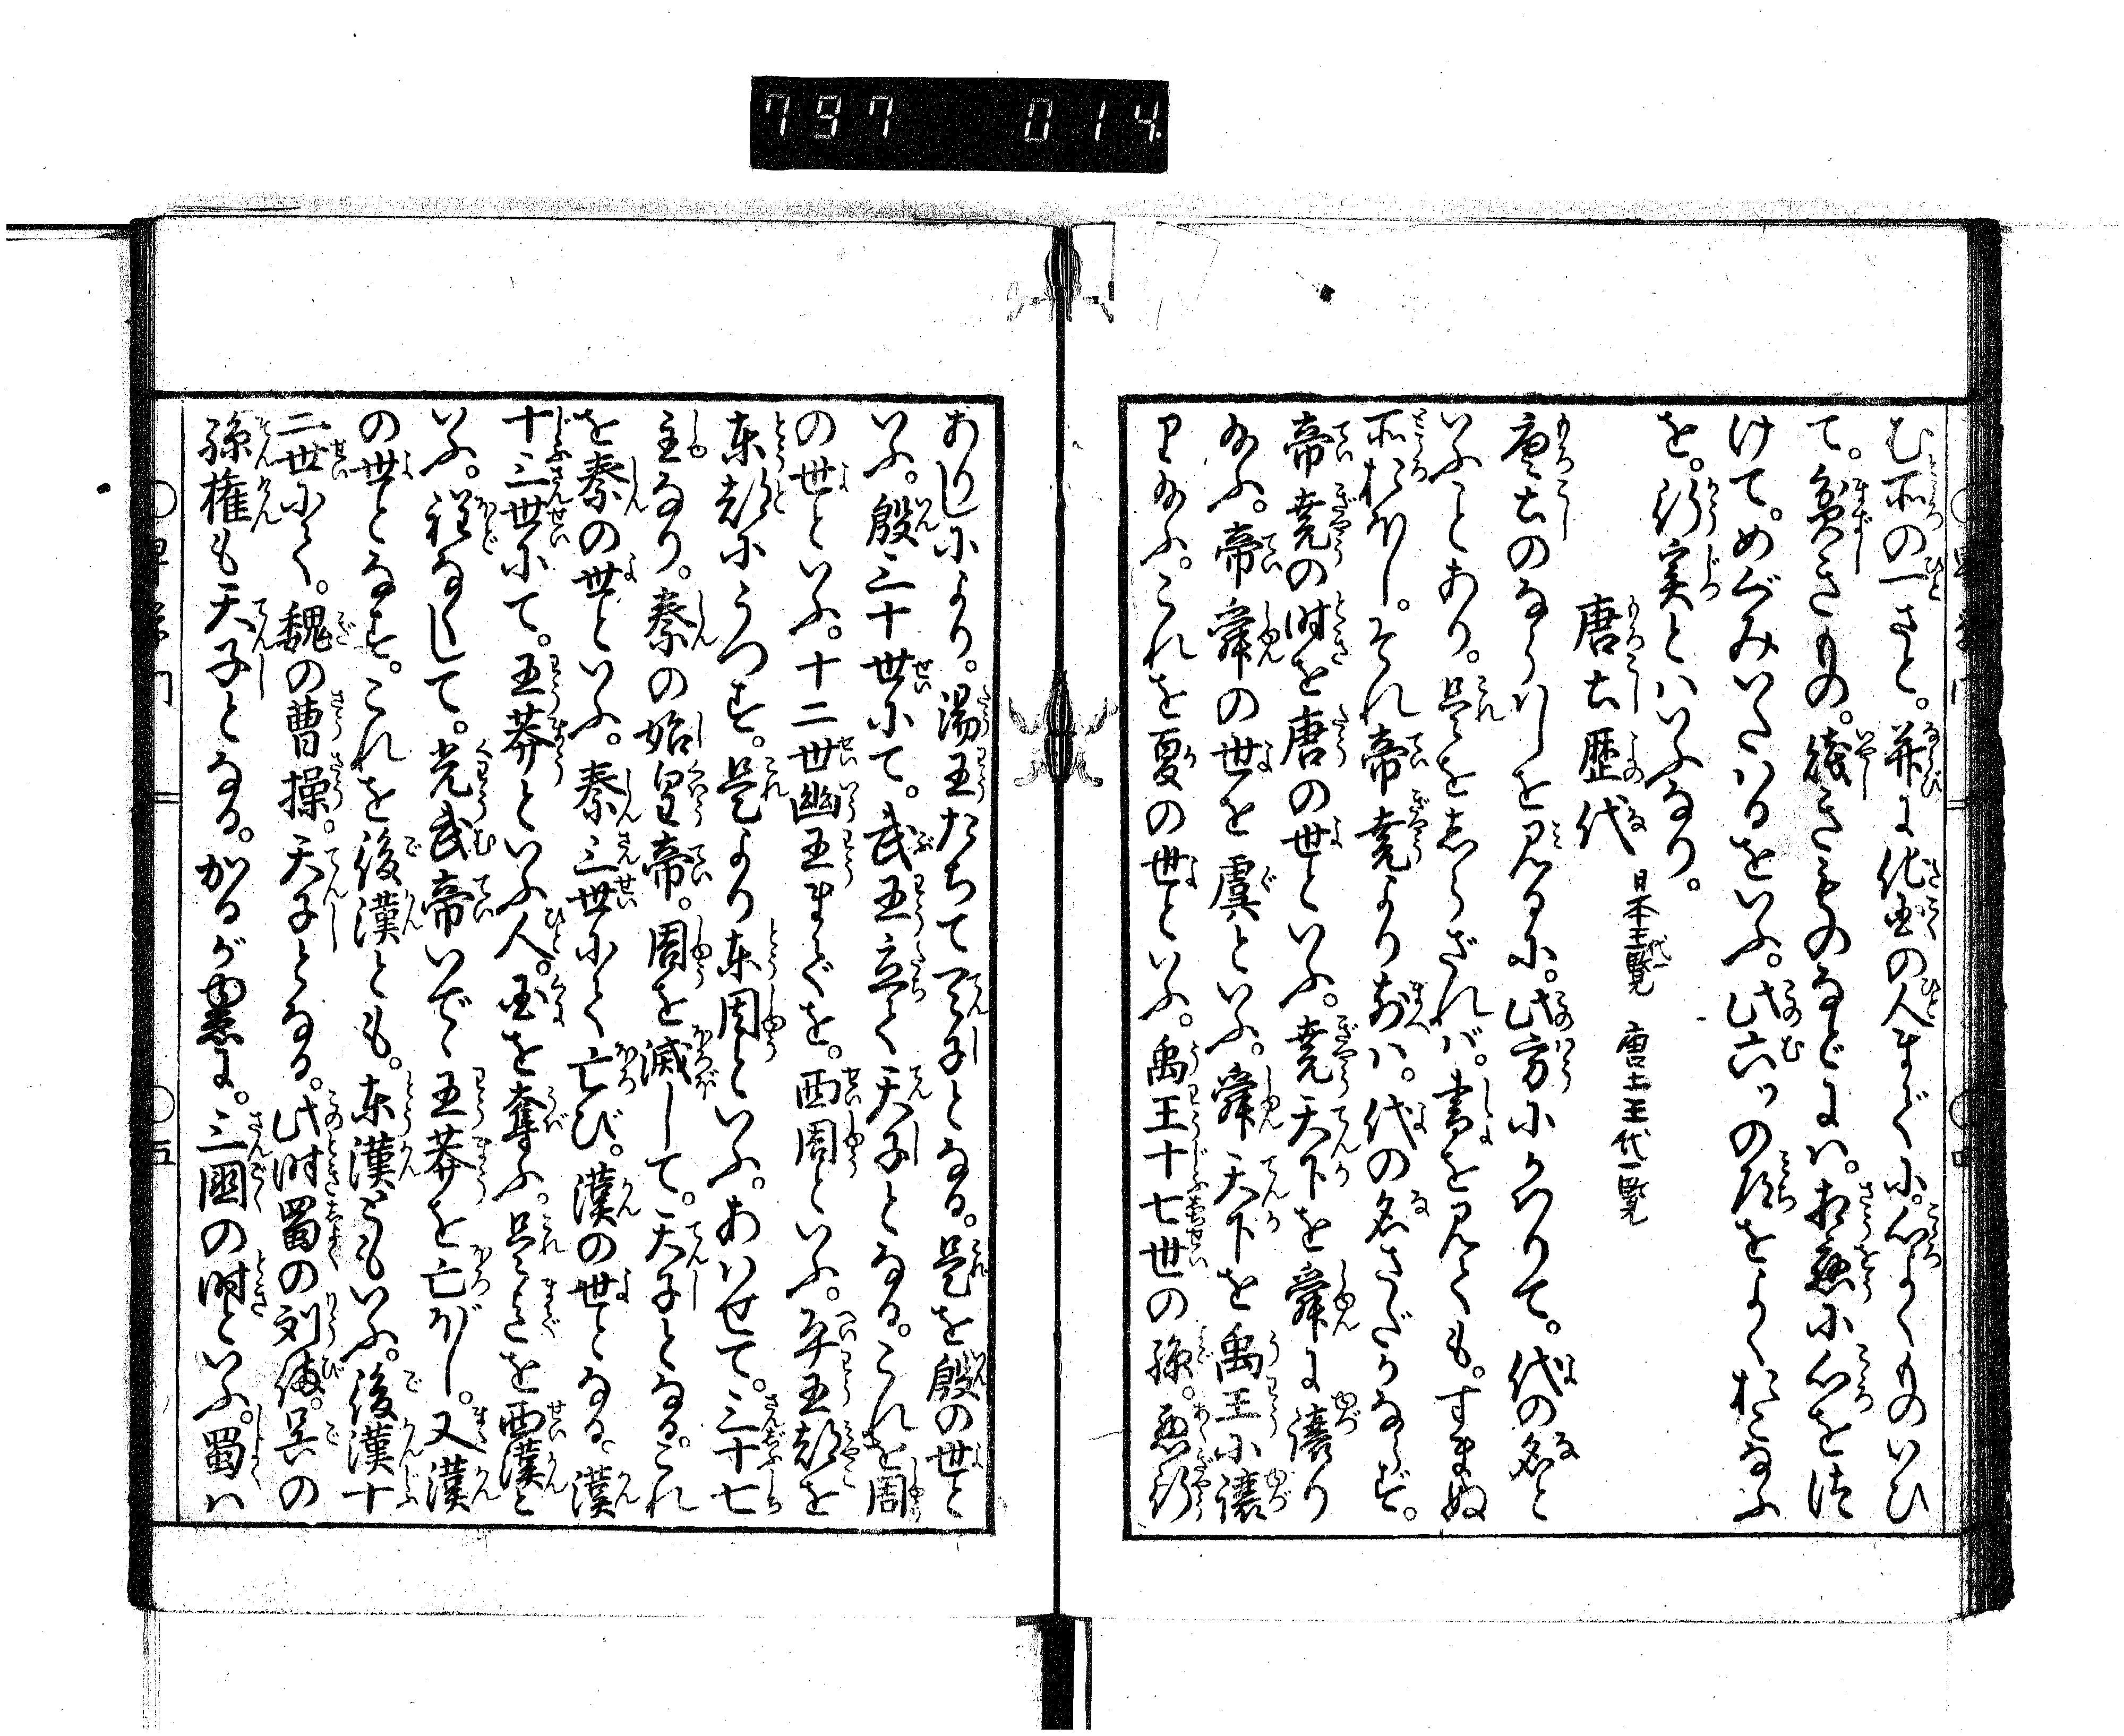 797 014
む所の一さと。并に他国の人までに。心よくものいひ
て。貧きもの。賤きものなどには。相応に心をつ
けて。めぐみいたはるをいふ。此六ツの道をよくおこなふ
を。行実とはいふなり。
唐土歴代 日本王代一覧 唐土王代一覧
唐土のならはしを見るに。此方にかはりて。代の名と
いふことあり。是をしらざれば。書を見ても。すまぬ
所おほし。それ帝堯より前は。代の名さだかならず。
帝堯の時を唐の世といふ。堯天下を舜に譲り
給ふ。帝舜の世を虞といふ。舜天下を禹王に譲
り給ふ。これを夏の世といふ。禹王十七世の孫。悪行
ありしにより。湯王たちて天子となる。是を殷の世と
いふ。殷三十世にて。武王立て天子となる。これを周
の世といふ。十二世幽王までを。西周といふ。平王都を
東都にうつす。是より東周といふ。あはせて。三十七
主なり。秦の始皇帝。周を滅して。天子となる。これ
を秦の世といふ。秦三世にて亡び。漢の世となる。漢
十三世にて。王莽といふ人。国を奪ふ。是までを西漢と
いふ。程なくして。光武帝いで。王莽を亡ぼし。又漢
の世となす。これを後漢とも。東漢ともいふ。後漢十
二世にて。魏の曹操。天子となる。此時蜀の劉備。呉の
孫権も天子となる。かるが故に。三国の時といふ。蜀は
五